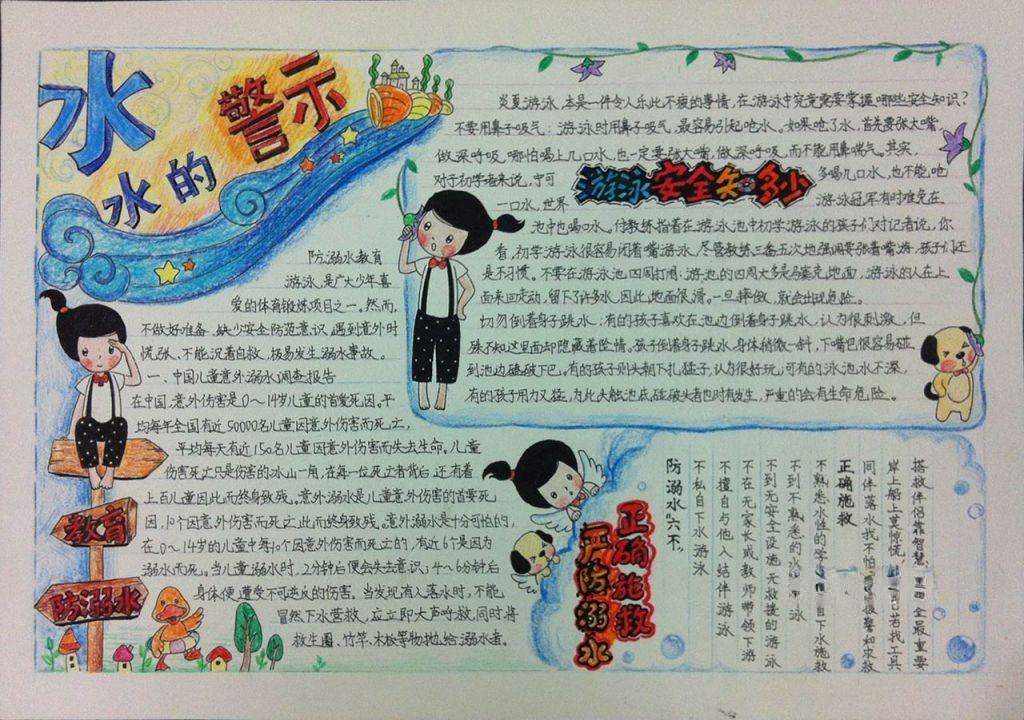 水
水的
警示
防溺水教育
游泳,是广大少年喜
爱的体育锻炼项目之一。然而,
不做好准备、缺少安全防范意识,遇到意外时
慌张、不能沉着自救,极易发生溺水事故。
一、中国儿童意外溺水调查报告
在中国,意外伤害是0~14岁儿童的首要死因。平
均每年全国有近50000名儿童因意外伤害而死亡,
平均每天有近150名儿童因意外伤害而失去生命。儿童
伤害死亡只是伤害的冰山一角,在每一位死亡者背后,还有着
上百儿童因此而终身致残。意外溺水是儿童意外伤害的首要死
因,10个因意外伤害而死亡,此而终身致残。意外溺水是十分可怕的,
在0~14岁的儿童中每10个因意外伤害而死亡的,有近6个是因为
溺水而死。当儿童溺水时,2分钟后便会失去意识;4~6分钟后
身体便遭受不可逆反的伤害。当发现有人落水时,不能
冒然下水营救,应立即大声呼救,同时将
救生圈、竹竿、木板等物抛给溺水者。
教育
防溺水
炎夏游泳,本是一件令人乐此不疲的事情,在游泳中究竟需要掌握哪些安全知识?
不要用鼻子吸气:游泳时用鼻子吸气,最容易引起呛水。如果呛了水,首先要张大嘴,
做深呼吸,哪怕喝上几口水,也一定要张大嘴,做深呼吸,而不能用鼻喘气。其实,
对于初学者来说,宁可
多喝几口水,也不能呛
游泳安全知多少
一口水,世界
游泳冠军有时难免在
池中也喝口水。付教练指着在游泳池中初学游泳的孩子们对记者说,你
看,初学游泳很容易闭着嘴游泳,尽管教练三番五次地强调要张着嘴游,孩子们还
是不习惯。不要在游泳池四周打闹:游池的四周大多是马赛克地面,游泳的人在上
面来回走动,留下了许多水,因此,地面很滑。一旦摔倒,就会出现危险。
切勿倒着身子跳水:有的孩子喜欢在池边倒着身子跳水,认为很刺激,但
殊不知这里面却隐藏着险情。孩子倒着身子跳水,身体稍微一斜,下嘴巴很容易碰
到池边磕破下巴。有的孩子则头朝下扎猛子,认为很好玩,可有的泳池水不深,
有的孩子用力又猛,为此头触池底,碰破头者也时有发生,严重的会有生命危险。
正确施救
严防溺水
防溺水“六不”
不私自下水游泳
不擅自与他人结伴游泳
不在无家长或教师带领下游
不到无安全设施无救援的游泳
不到不熟悉的水 泳
不熟悉水性的学 自下水施救
正确施救
同伴落水我不怕 报警和求救
岸上船上莫惊慌 若找工具
搭救伴侣靠智慧 里四 全最重要